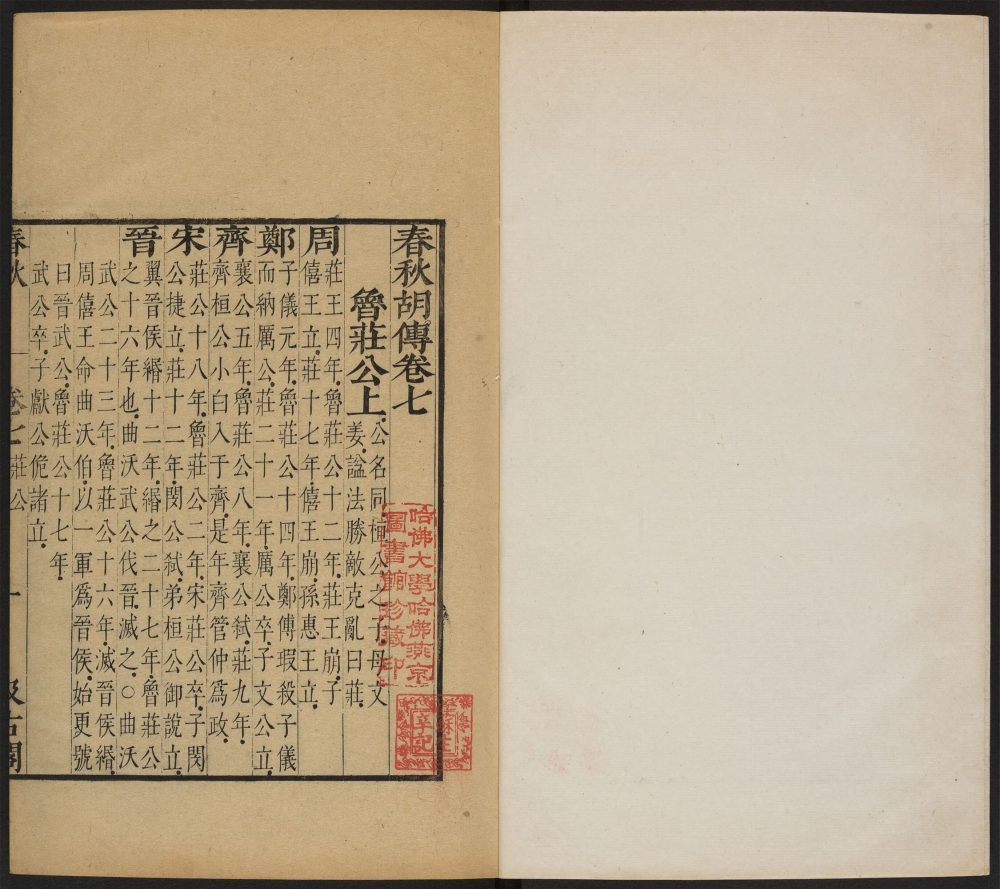 春秋胡傳卷七
魯莊公上
公名同.桓公之子.母文
姜.謚法勝敵克亂曰莊.
周
莊王四年.魯莊公十二年.莊王崩.子
僖王立.莊十七年.僖王崩.孫惠王立.
鄭
子儀元年.魯莊公十四年.鄭傳瑕殺子儀
而納厲公.莊二十一年.厲公卒.子文公立.
齊
襄公五年.魯莊公八年.襄公弒.莊九年.
齊桓公小白入于齊.是年齊管仲爲政.
宋
莊公十八年.魯莊公二年.宋莊公卒.子閔
公捷立.莊十二年.閔公弒.弟桓公御說立.
晉
翼晉侯緡十二年.緡之二十七年.魯莊公
之十六年也.曲沃武公伐晉.滅之.○曲沃
武公二十三年.魯莊公十六年.滅晉侯緡.
周僖王命曲沃伯.以一軍爲晉侯.始更號
曰晉武公.魯莊公十七年.
武公卒.子獻公佹諸立.
春秋 卷七 莊公 一 汲古閣
哈佛大學哈佛燕京
圖書館珍藏印